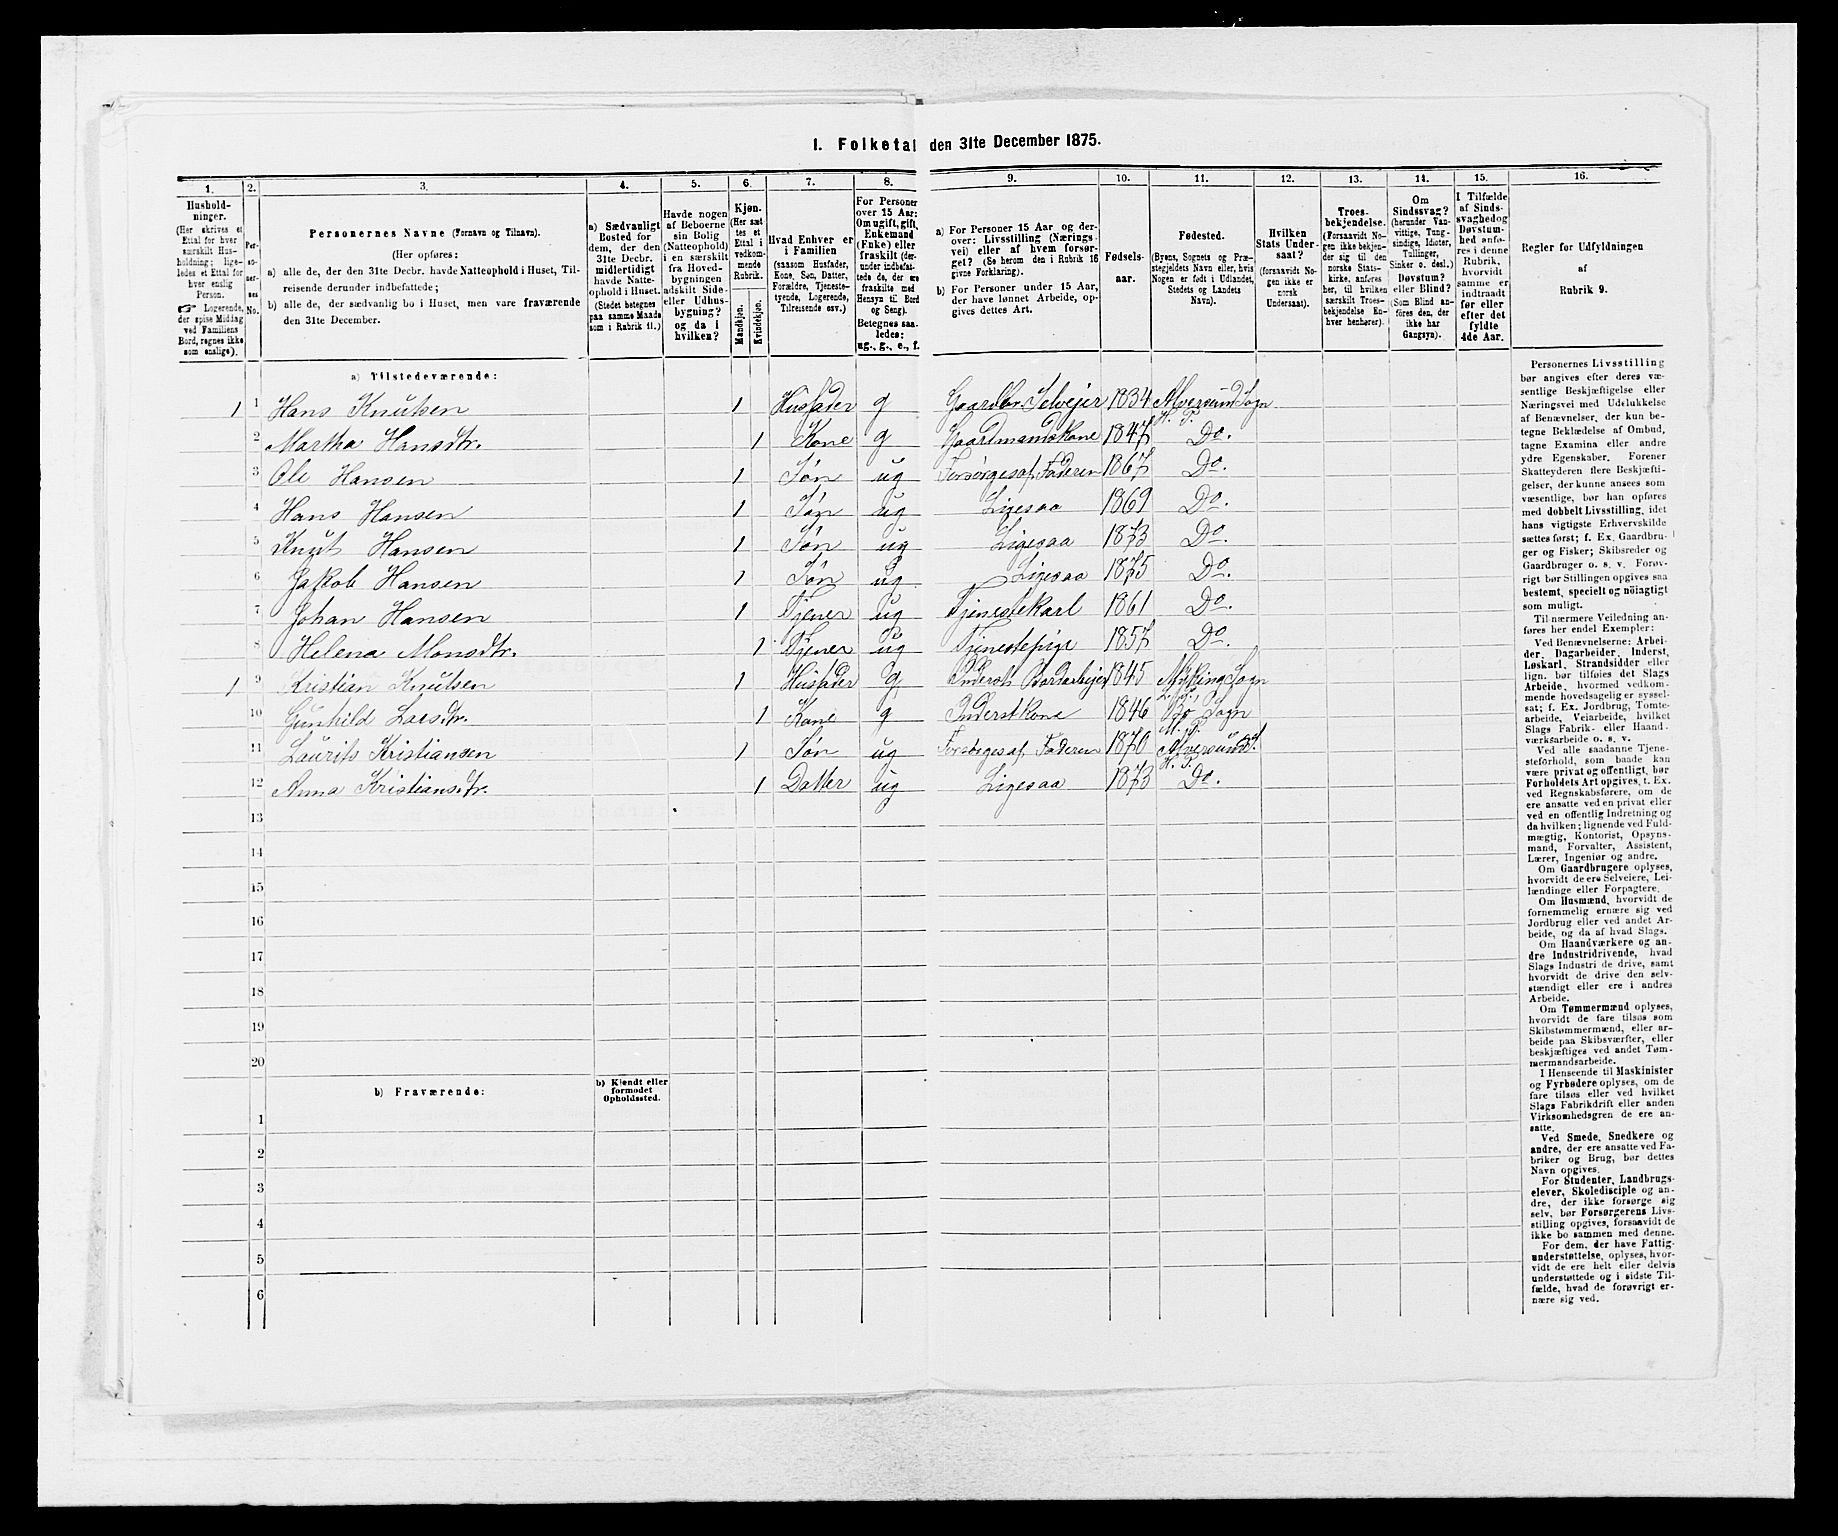 I. Folketal den 31te December 1875.
1. 2. 3. 4. 5. 6. 7. 8. 9. 10. 11. 12. 13. 14. 15. 16.
Hushold-
ninger.
(Her skrives et
Ettal for hver
særskilt Hus-
holdning; lige-
ledes et Ettal for
hver enslig
Person.
☞ Logerende,
der spise Middag
ved Familiens
Bord, regnes ikke
som enslige).
Per-
so-
ner-
nes
No.
Personernes Navne (Fornavn og Tilnavn).
(Her opføres:
a) alle de, der den 31te Decbr. havde Natteophold i Huset, Til-
reisende derunder indbefattede;
b) alle de, der sædvanlig bo i Huset, men vare fraværende
den 31te December.
a) Sædvanligt
Bosted for
dem, der den
31te Decbr.
midlertidigt
havde Natte-
ophold i Huset.
(Stedet betegnes
paa samme Maade
som i Rubrik 11.)
Havde nogen
af Beboerne
sin Bolig
(Natteophold)
i en særskilt
fra Hoved-
bygningen
adskilt Side-
eller Udhus-
bygning?
og da i
hvilken?
Kjøn.
(Her sæt
tes et
Ettal i
vedkom-
mende
Rubrik.
Mandkjøn.
Kvindekjøn.
Hvad Enhver er
i Familien
(saasom Husfader,
Kone, Søn, Datter,
Forældre, Tjeneste-
tyende, Logerende,
Tilreisende osv.)
For Personer
over 15 Aar:
Om ugift, gift,
Enkemand
(Enke) eller
fraskilt (der-
under indbefat-
tede de, der ere
fraskilte med
Hensyn til Bord
og Seng).
Betegnes saa-
ledes:
ug., g., e., f.
a) For Personer 15 Aar og der-
over: Livsstilling (Nærings-
vei) eller af hvem forsør-
get? (Se herom den i Rubrik 16
givne Forklaring).
b) For Personer under 15 Aar,
der have lønnet Arbeide, op-
gives dettes Art.
Fødsels-
aar.
Fødested.
(Byens, Sognets og Præ-
stegjeldets Navn eller, hvis
Nogen er født i Udlandet,
Stedets og Landets
Navn).
Hvilken
Stats Under-
saat?
(forsaavidt No-
gen ikke er
norsk
Undersaat).
Troes-
bekjendelse.
(Forsaavidt No-
gen ikke bekjen-
der sig til den
norske Stats-
kirke, anføres
her, til hvilken
særskilt Troes-
bekjendelse En-
hver henhører).
Om
Sindssvag?
(herunder Van-
vittige, Tung-
sindige, Idioter,
Tullinger,
Sinker o. desl.)
Døvstum?
eller Blind?
(Som Blind an-
føres den, der
ikke har
Gangsyn).
I Tilfælde
af Sinds-
svaghed og
Døvstum-
hed anfø-
res i denne
Rubrik,
hvorvidt
samme er
indtraadt
før eller
efter det
fyldte
4de Aar.
Regler for Udfyldningen
af
Rubrik 9.
a) Tilstedeværende:
1 1 Hans Knutsen 1 Husfader g Gaardbr. Selvejer 1834 Alversund Sogn H. P.
2 Martha Hansdtr. 1 Kone g Gaardmandskone 1847 Do.
3 Ole Hansen 1 Søn ug Forsørges af Faderen 1867 Do.
4 Hans Hansen 1 Søn ug Ligesaa 1869 Do.
5 Knut Hansen 1 Søn ug Ligesaa 1873 Do.
6 Jakob Hansen 1 Søn ug Ligesaa 1875 Do.
7 Johan Hansen 1 Tjener ug Tjenestekarl 1861 Do.
8 Helena Monsdtr. 1 Tjener ug Tjenestepige 1857 Do.
1 9 Kristian Knutsen 1 Husfader g Inderst 1845 Sogn
10 Gunhild Larsdtr. 1 Kone g Inderstkone 1846 Bø Sogn
11 Laurits Kristiansen 1 Søn ug Forsørges af Faderen 1870 Alversund S. H. P.
12 Anna Kristiansdtr. 1 Datter ug Ligesaa 1873 Do.
13
14
15
16
17
18
19
20
b) Fraværende:
b) Kjendt eller
formodet
Opholdssted.
1
2
3
4
5
6
Personernes Livsstilling
bør angives efter deres væ-
sentlige Beskjæftigelse eller
Næringsvei med Udelukkelse
af Benævnelser, der kun be-
tegne Beklædelse af Ombud,
tagne Examina eller andre
ydre Egenskaber. Forener
Skatteyderen flere Beskjæfti-
gelser, der kunne ansees som
væsentlige, bør han opføres
med dobbelt Livsstilling, idet
hans vigtigste Erhvervskilde
sættes først; f. Ex. Gaardbru-
ger og Fisker; Skibsreder og
Gaardbruger o. s. v. Forøv-
rigt bør Stillingen opgives saa
bestemt, specielt og nöiagtig
som muligt.
Til nærmere Veiledning an-
føres her endel Exempler:
Ved Benævnelserne: Arbei-
der, Dagarbeider, Inderst,
Løskarl, Strandsidder eller
lign. bør tilføies det Slags
Arbeide, hvormed vedkom-
mende hovedsagelig er syssel-
sat; f. Ex. Jordbrug, Tomte-
arbeide, Veiarbeide, hvilket
Slags Fabrik- eller Haand-
værksarbeide o. s. v.
Ved alle saadanne Tjene-
steforhold, som baade kan
være privat og offentligt, bør
Forholdets Art opgives, t. Ex.
ved Regnskabsførere, om de
ere ansatte ved en privat eller
ved en offentlig Indretning og
da hvilken; lignende ved Fuld-
mægtig, Kontorist, Opsyns-
mand, Forvalter, Assistent,
Lærer, Ingeniør og andre.
Om Gaardbrugere oplyses,
hvorvidt de ere Selveiere, Lei-
lændinge eller Forpagtere.
Om Husmænd, hvorvidt de
fornemmelig ernære sig ved
Jordbrug eller ved andet Ar-
beide, og da af hvad Slags.
Om Haandværkere og an-
dre Industridrivende, hvad
Slags Industri de drive, samt
hvorvidt de drive den selv-
stændigt eller ere i andres
Arbeide.
Om Tømmermænd oplyses,
hvorvidt de fare tilsøs som
Skibstømmermænd, eller ar-
beide paa Skibsværfter, eller
beskjæftiges ved andet Tøm-
mermandsarbeide.
I Henseende til Maskinister
og Fyrbødere oplyses, om de
fare tilsøs eller ved hvilket
Slags Fabrikdrift eller anden
Virksomhedsgren de ere an-
satte.
Ved Smede, Snedkere og
andre, der ere ansatte ved Fa-
briker og Brug, bør dettes
Navn opgives.
For Studenter, Landbrugs-
elever, Skoledisciple og an-
dre, der ikke forsørge sig
selv, bør Forsørgerens Livs-
stilling opgives, forsaavidt de
ikke bo sammen med denne.
For dem, der have Fattig-
understøttelse, oplyses, hvor-
vidt de ere helt eller delvis
understøttede og i sidste Til-
fælde, hvad de forøvrigt er-
nære sig ved.